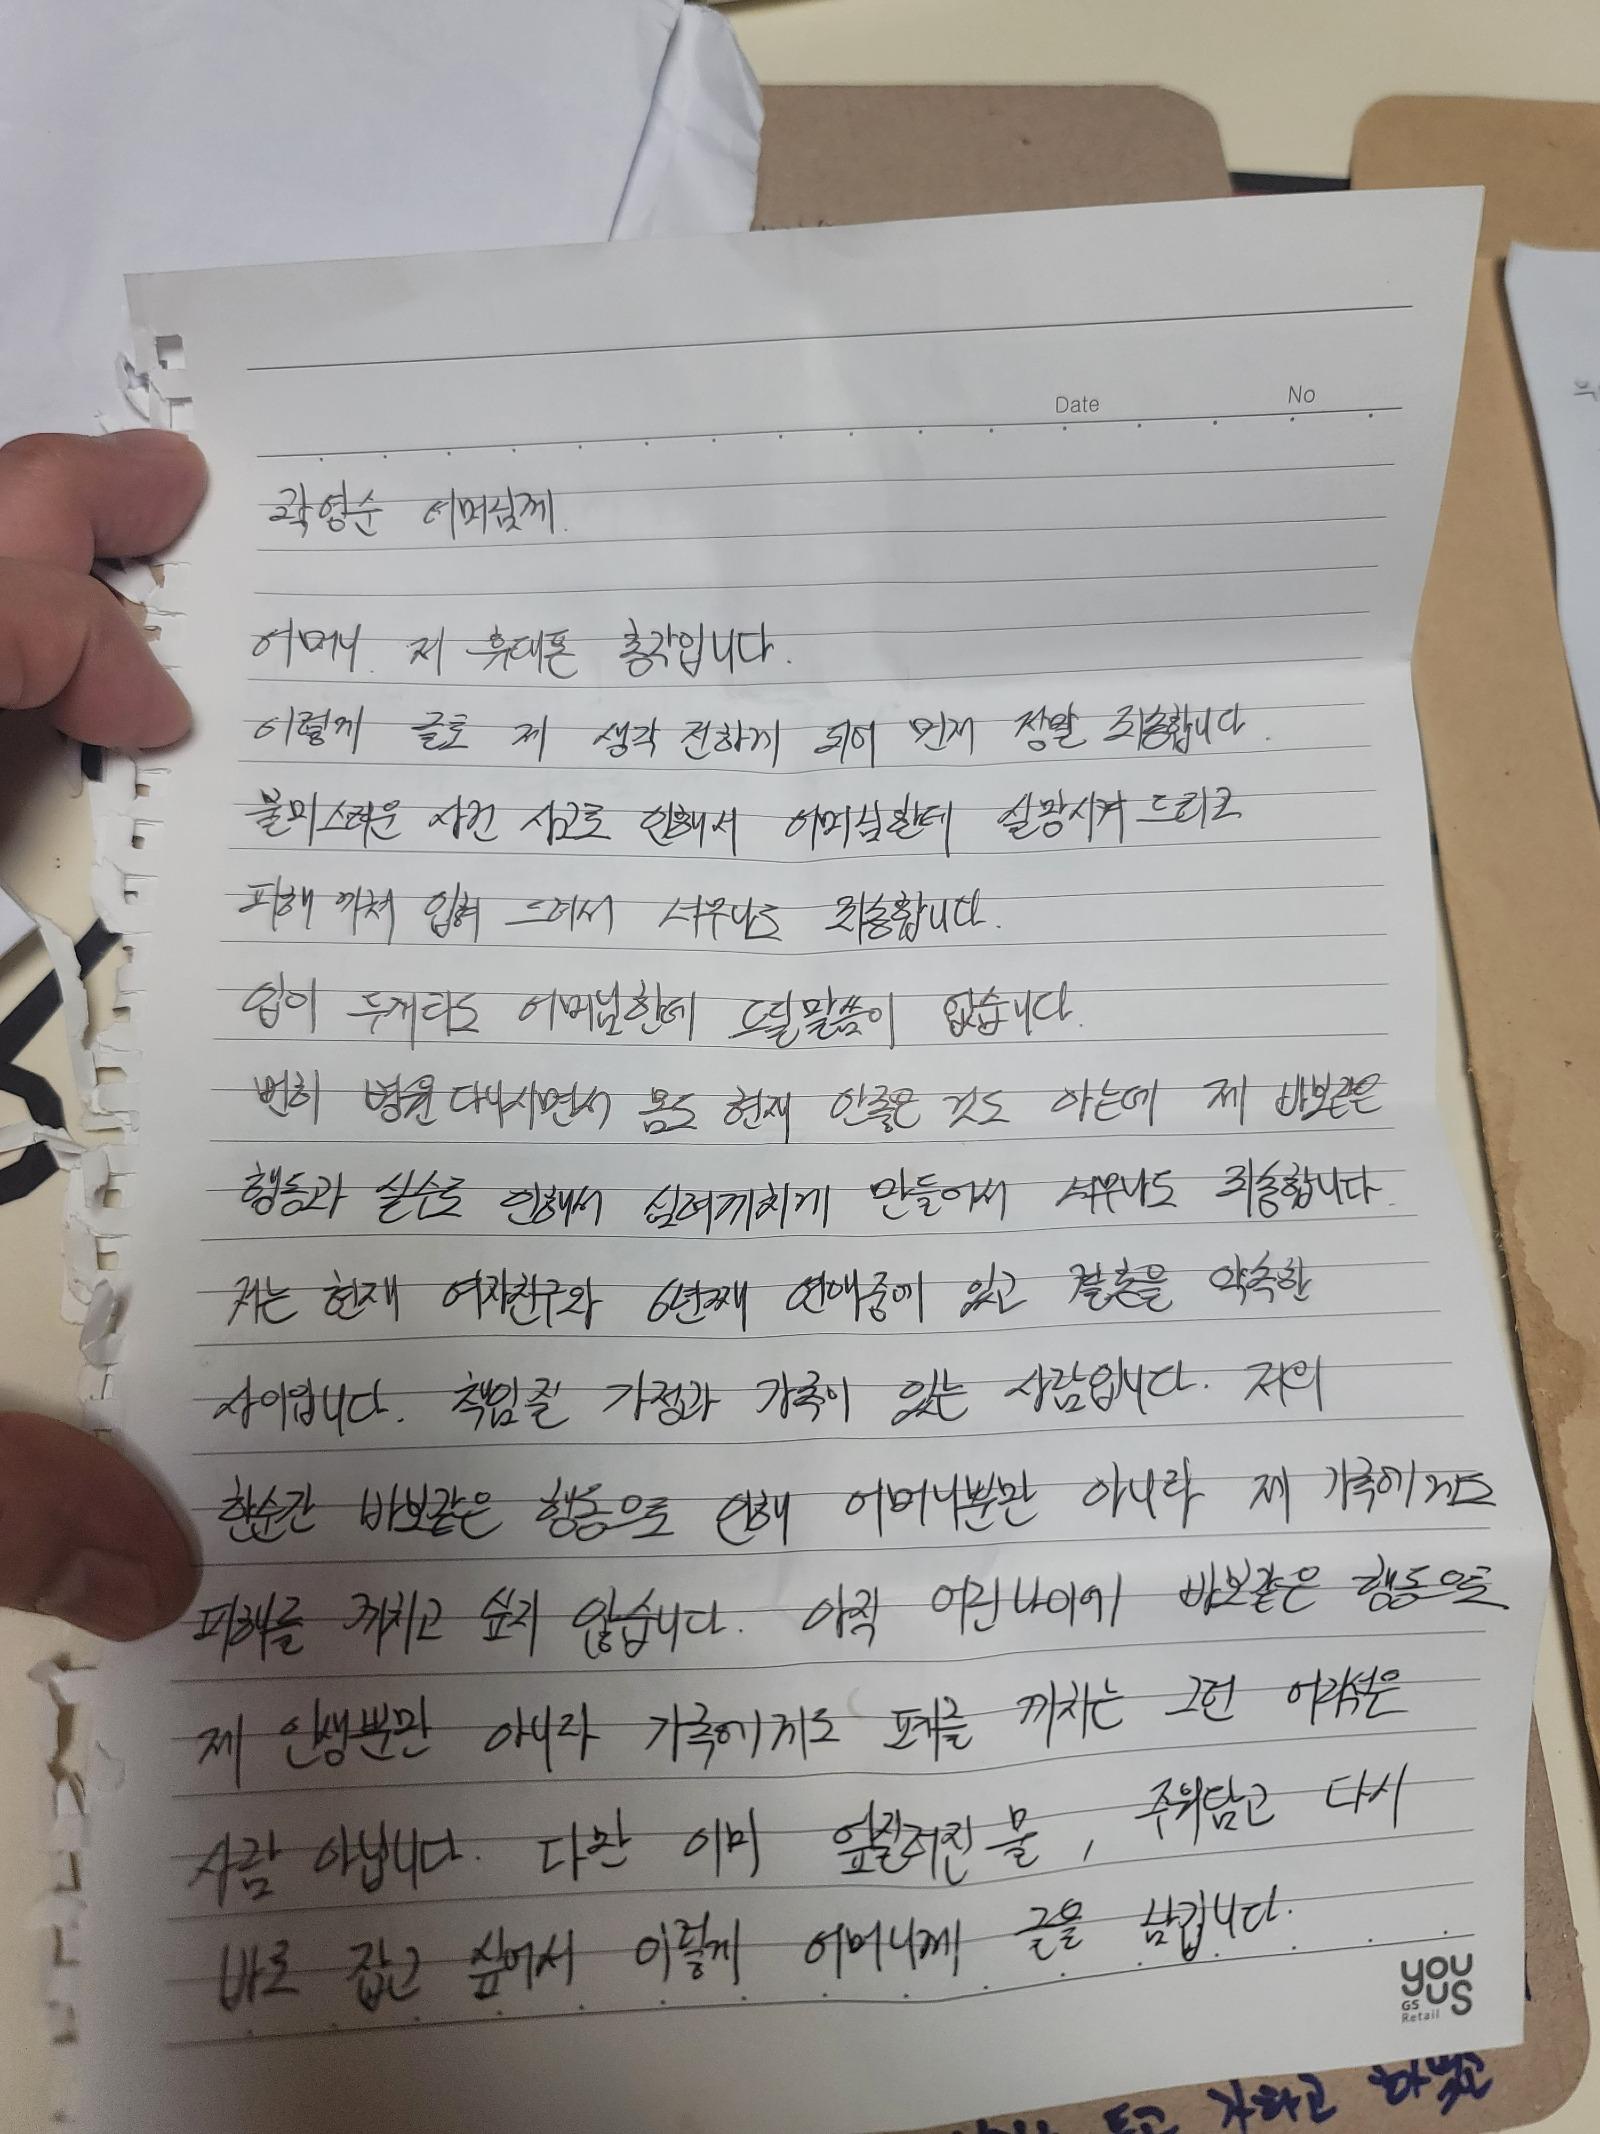 Date No
곽영순 어머님께.
어머니. 저 휴대폰 총각입니다.
이렇게 글로 제 생각 전하게 되어 먼저 정말 죄송합니다.
불미스러운 사건 사고로 인해서 어머님한테 실망시켜 드리고
피해 끼쳐 입혀 드려서 너무나도 죄송합니다.
입이 두개라도 어머님한테 드릴말씀이 없습니다.
번히 병원다니시면서 몸도 현재 안좋은 것도 아는데 제 바보같은
행동과 실수로 인해서 심려끼치게 만들어서 너무나도 죄송합니다.
저는 현재 여자친구와 6년째 연애중에 있고 결혼을 약속한
사이입니다. 책임질 가정과 가족이 있는 사람입니다. 저의
한순간 바보같은 행동으로 인해 어머니뿐만 아니라 제 가족에게도
피해를 끼치고 싶지 않습니다. 아직 어린나이에 바보같은 행동으로
제 인생뿐만 아니라 가족에게도 폐를 끼치는 그런 어리석은
사람 아닙니다. 다만 이미 엎질러진 물, 주워담고 다시
바로 잡고 싶어서 이렇게 어머니께 글을 남깁니다.
you
us
GS
Retail
하고